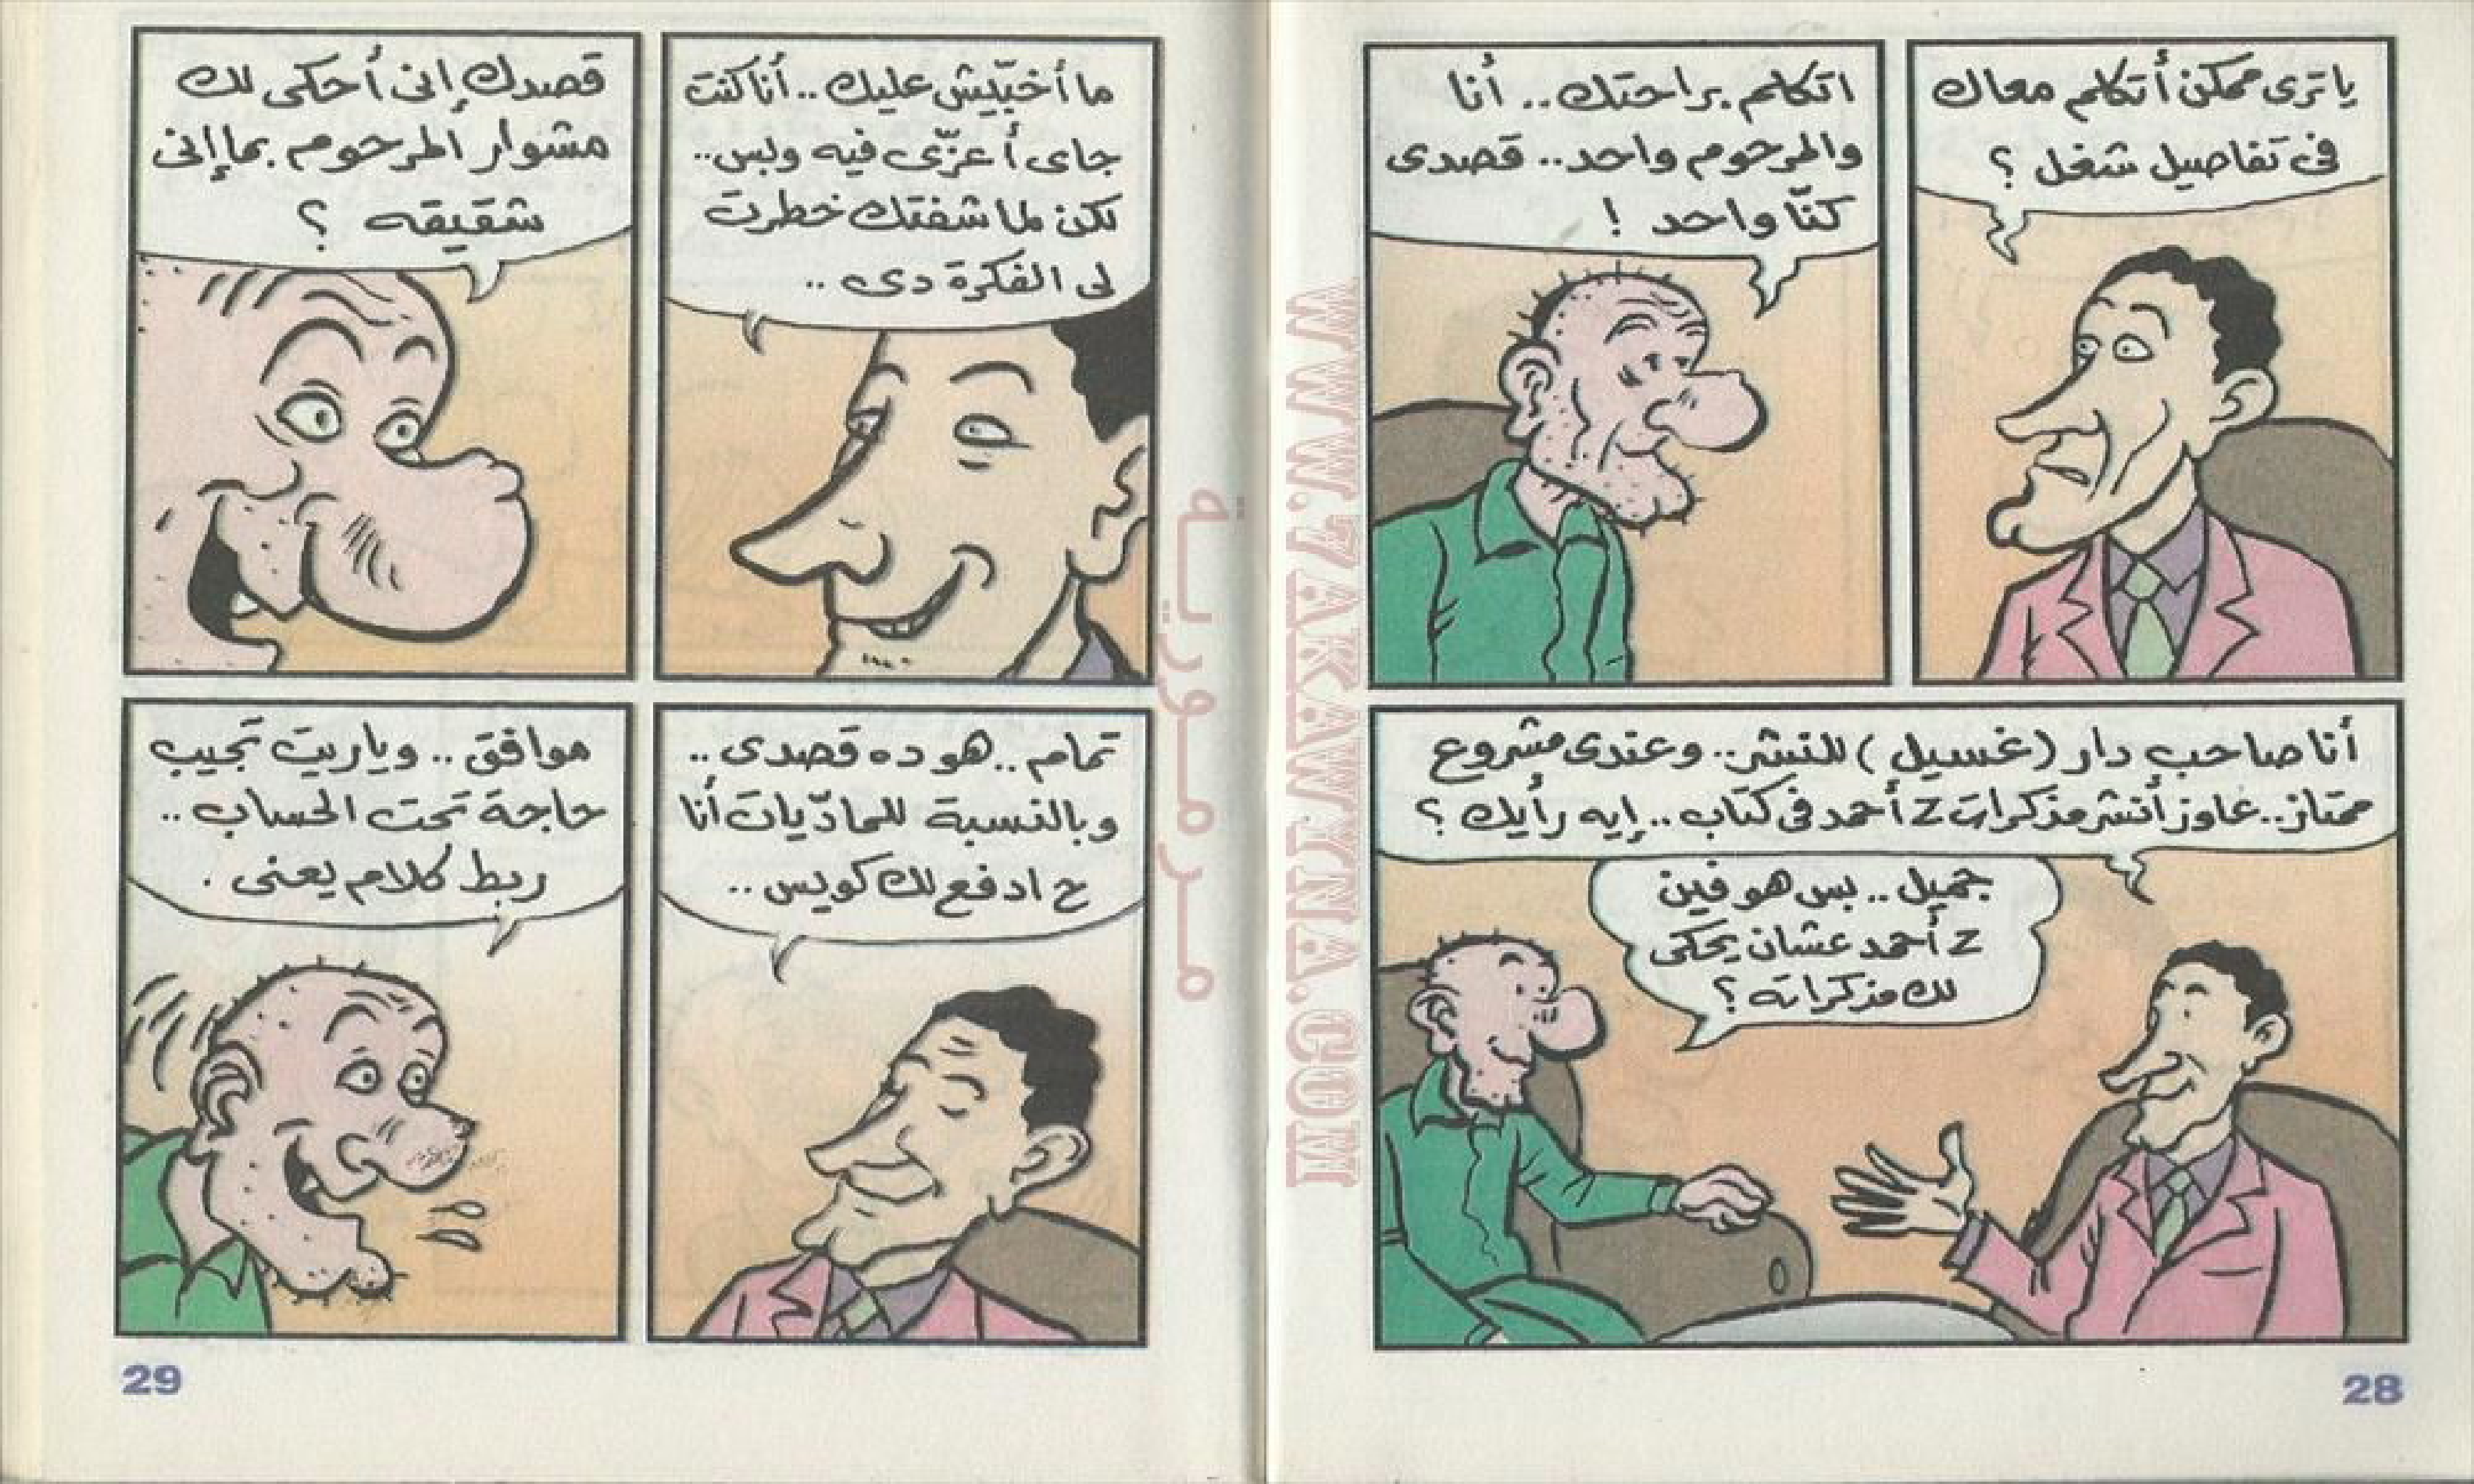 ياترى ممكن أتكلم معاك
فى تفاصيل شغل ؟
اتكلم براحتك .. أنا
والمرحوم واحد .. قصدى
كنّا واحد !
أنا صاحب دار (غسيل) للنشر .. وعندى مشروع
ممتاز .. عاوز أنشر مذكرات Z أحمد فى كتاب .. إيه رأيك ؟
جميل .. بس هو فين
Z أحمد عشان يحكى
لك مذكراته ؟
28
ما أخبّيش عليك .. أنا كنت
جاى أعزّى فيه وبس ..
لكن لما شفتك خطرت
لى الفكرة دى ..
قصدك إنى أحكى لك
مشوار المرحوم بما إنى
شقيقه ؟
تمام .. هو ده قصدى ..
وبالنسبة للماديّات أنا
ح ادفع لك كويس ..
موافق .. وياريت تجيب
حاجة تحت الحساب ..
ربط كلام يعنى .
29
مرمورية
WWW.7AKAWINA.COM